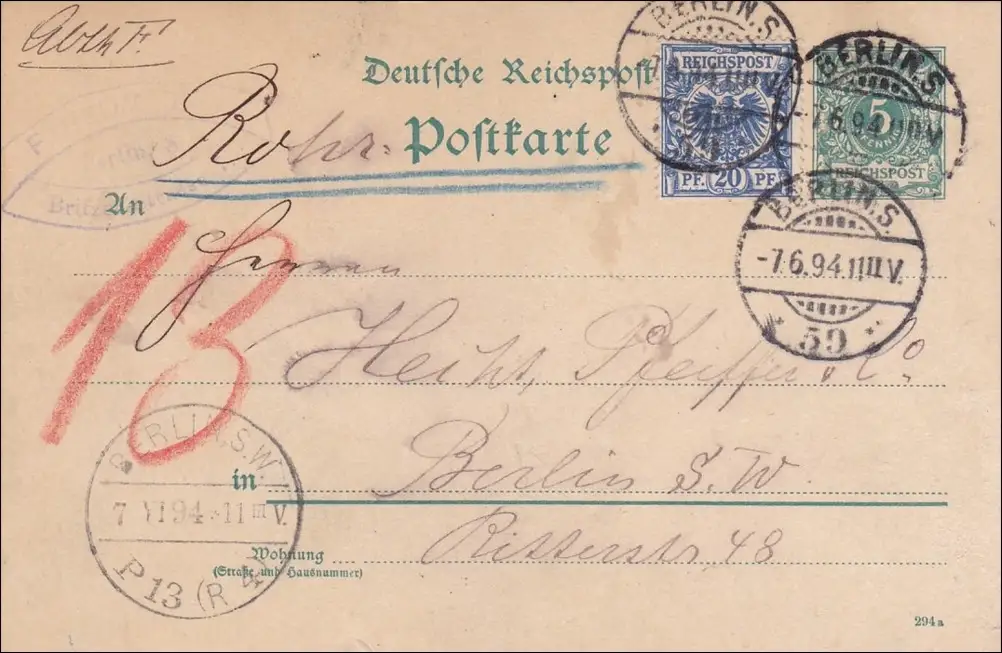 Abth F.
Deutsche Reichspost
Rohr-
Postkarte
REICHSPOST
PF. 20 PF
5
REICHSPOST
BERLIN.S.
BERLIN.S.
-7.6.94
BERLIN.S.
-7.6.94.11 III V.
* 59 *
An
Herren
Hecht, Pfeiffer u. Co
in
Berlin S. W
Wohnung
(Straße und Hausnummer)
Ritterstr, 48
13
BERLIN.S.W.
7 VI 94 -11 III V.
P 13 (R
294a